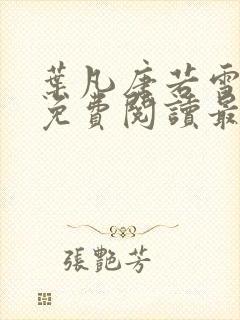 葉凡唐若雪
免費閱讀最
張艷芳